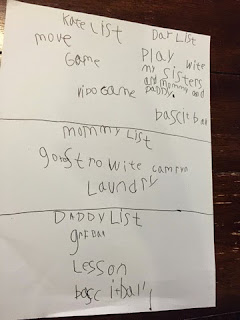 Kate LIST
move
Game
vidogame
Dar LIST
Play wite
my sisters
and mommy and
daddy.
bascit ball
mommy LIST
wite
Laundry
DaDDY LIST
Lesson
bascitball!